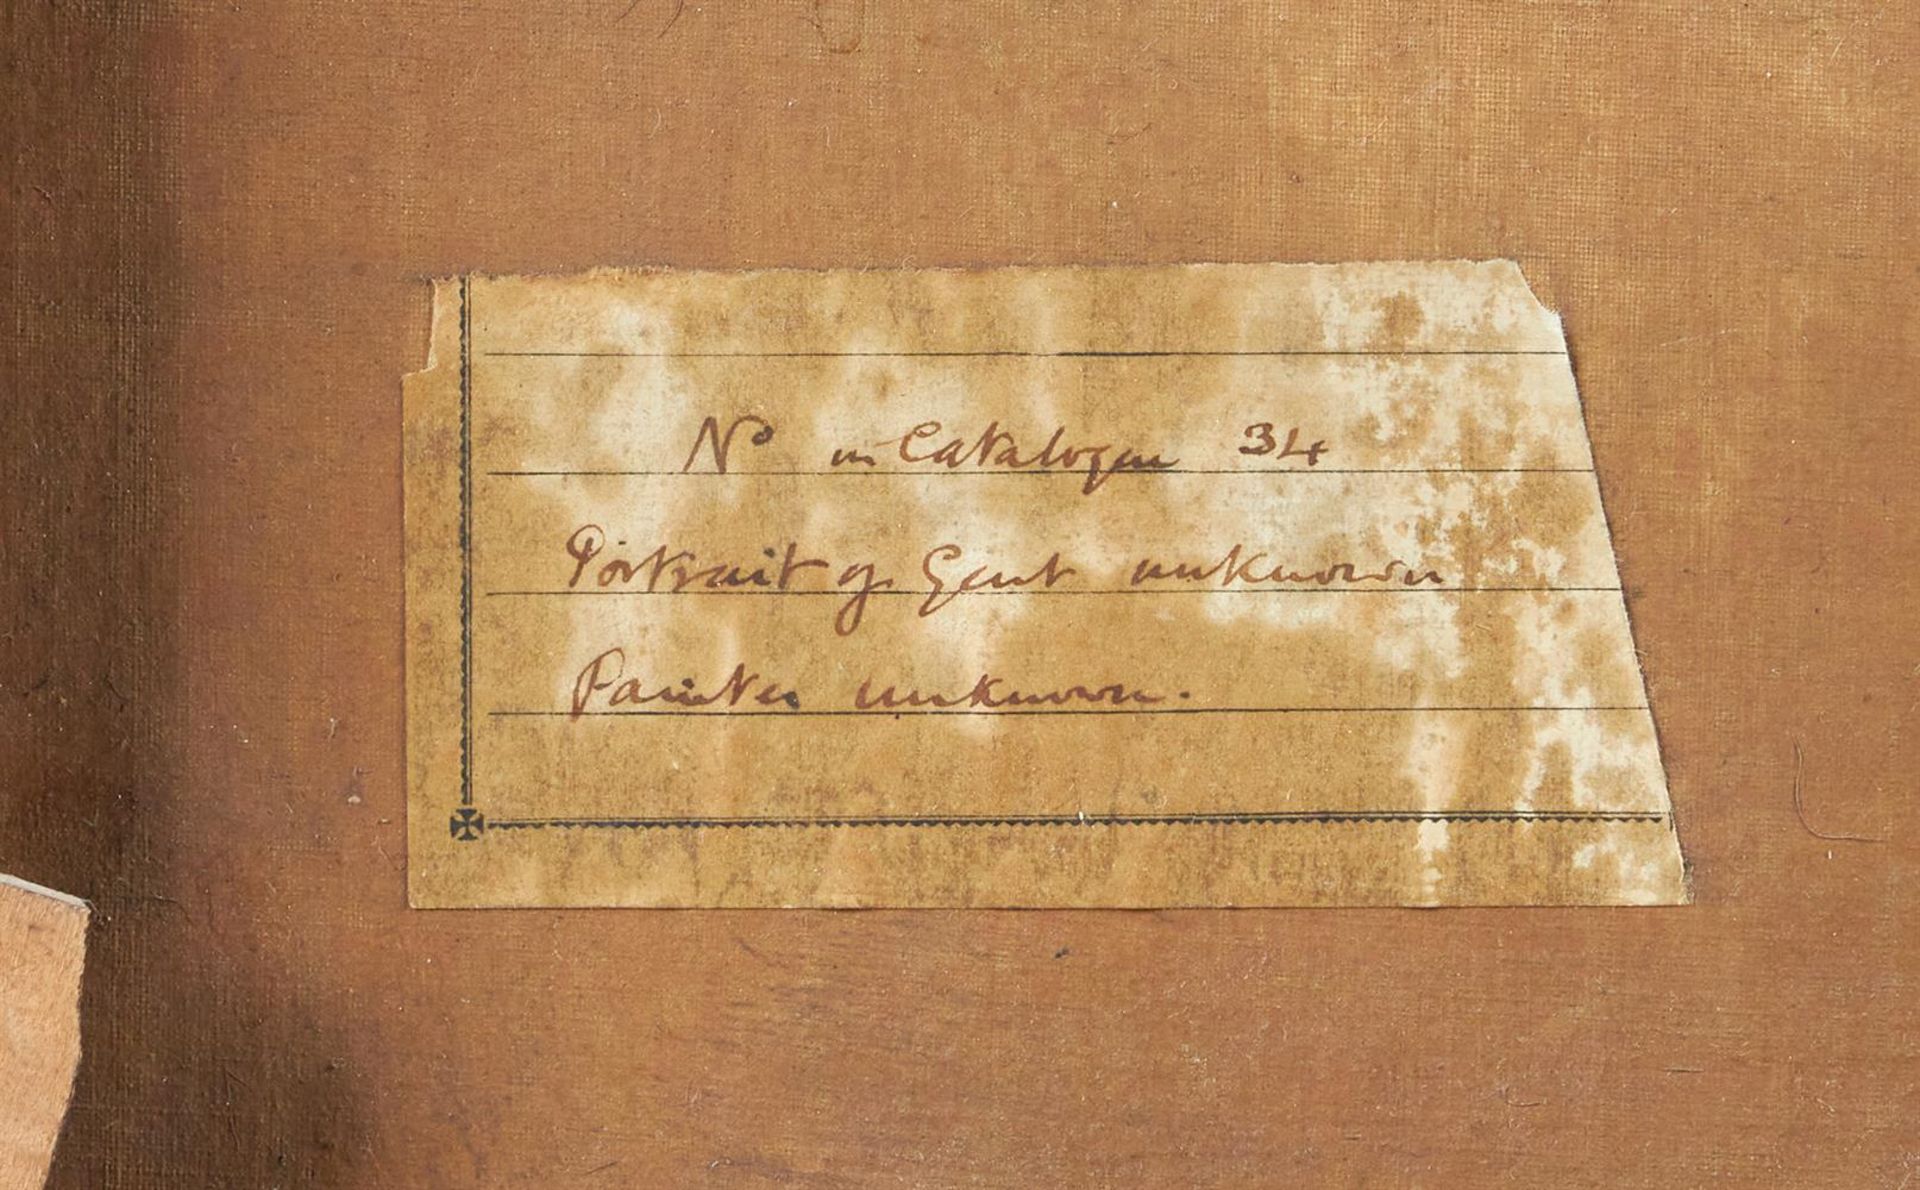 Nº in Catalogue 34
Portrait of Gent unknown
Painter unknown.